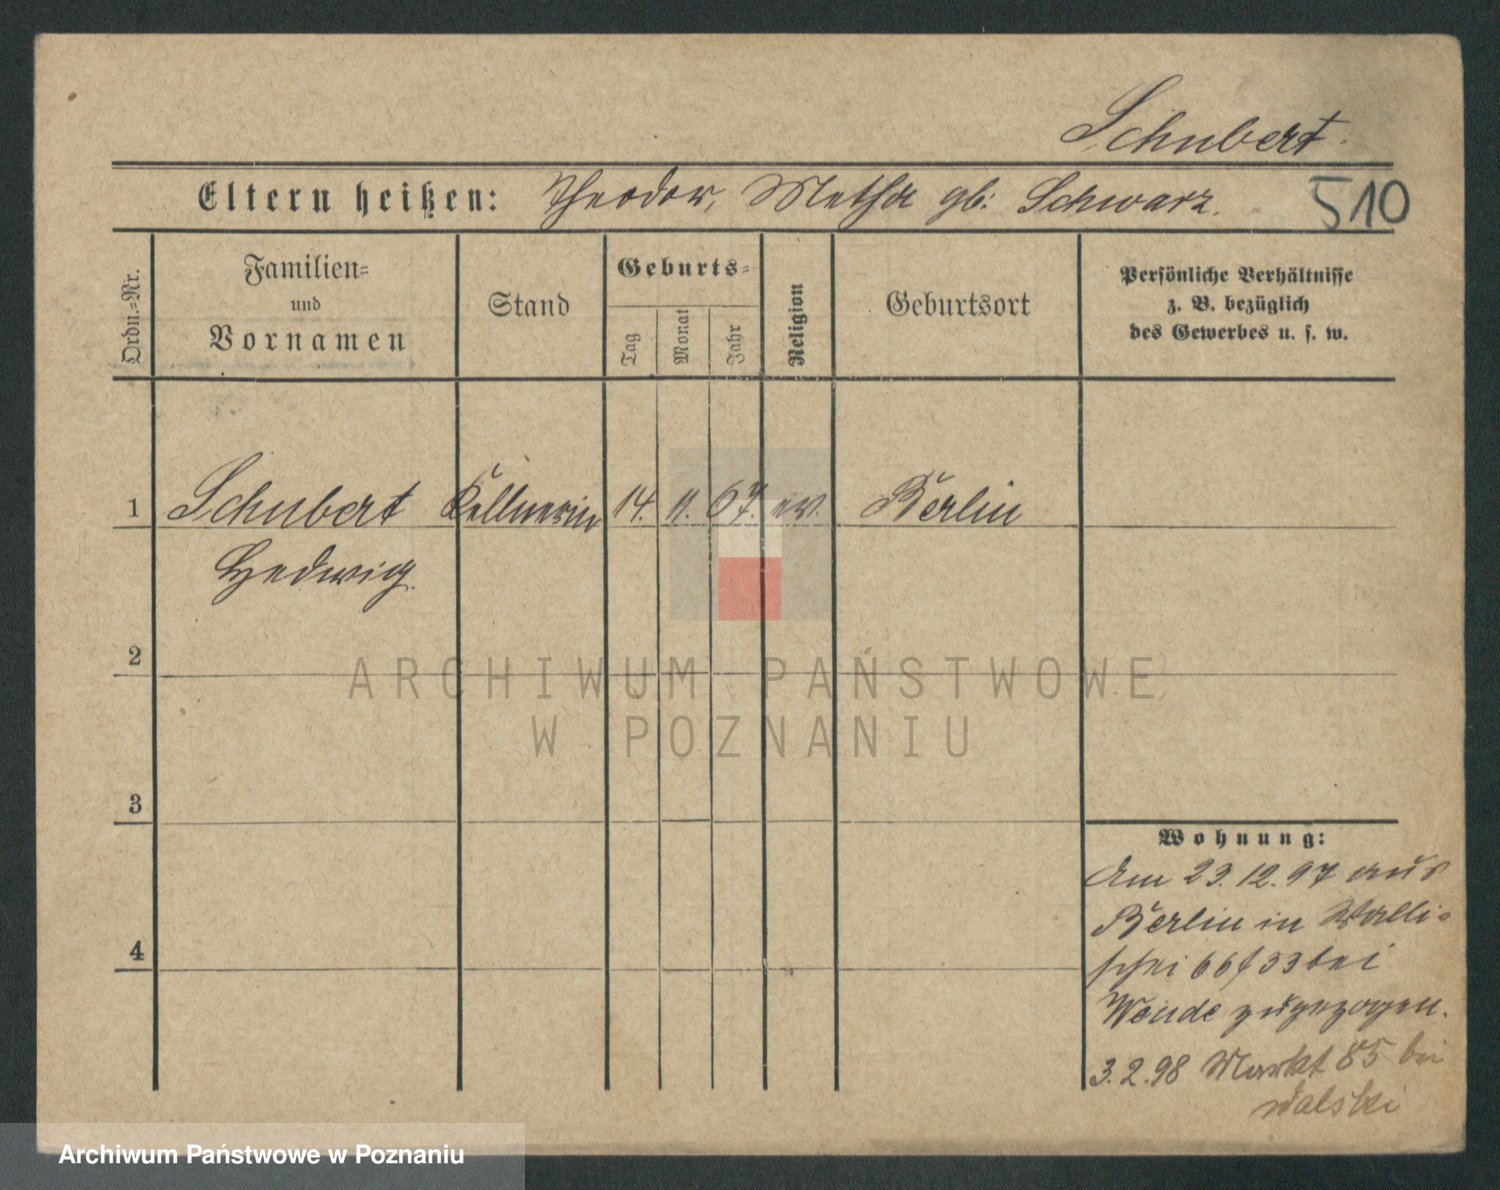 Schubert.
Eltern heißen: Theodor, Metha gb: Schwarz.
510
Ordn.-Nr.
Familien-
und
Vornamen
Stand
Geburts-
Tag
Monat
Jahr
Religion
Geburtsort
Persönliche Verhältnisse
z. B. bezüglich
des Gewerbes u. s. w.
1 Schubert Kellnerin 14. 11. 67. ev. Berlin
Hedwig
2
3
4
Wohnung:
Am 23.12.97 aus
Berlin in Walli-
schei 66/33 bei
Wende zugezogen.
3.2.98 Markt 85 bei
Walski
ARCHIWUM PAŃSTWOWE
W POZNANIU
Archiwum Państwowe w Poznaniu